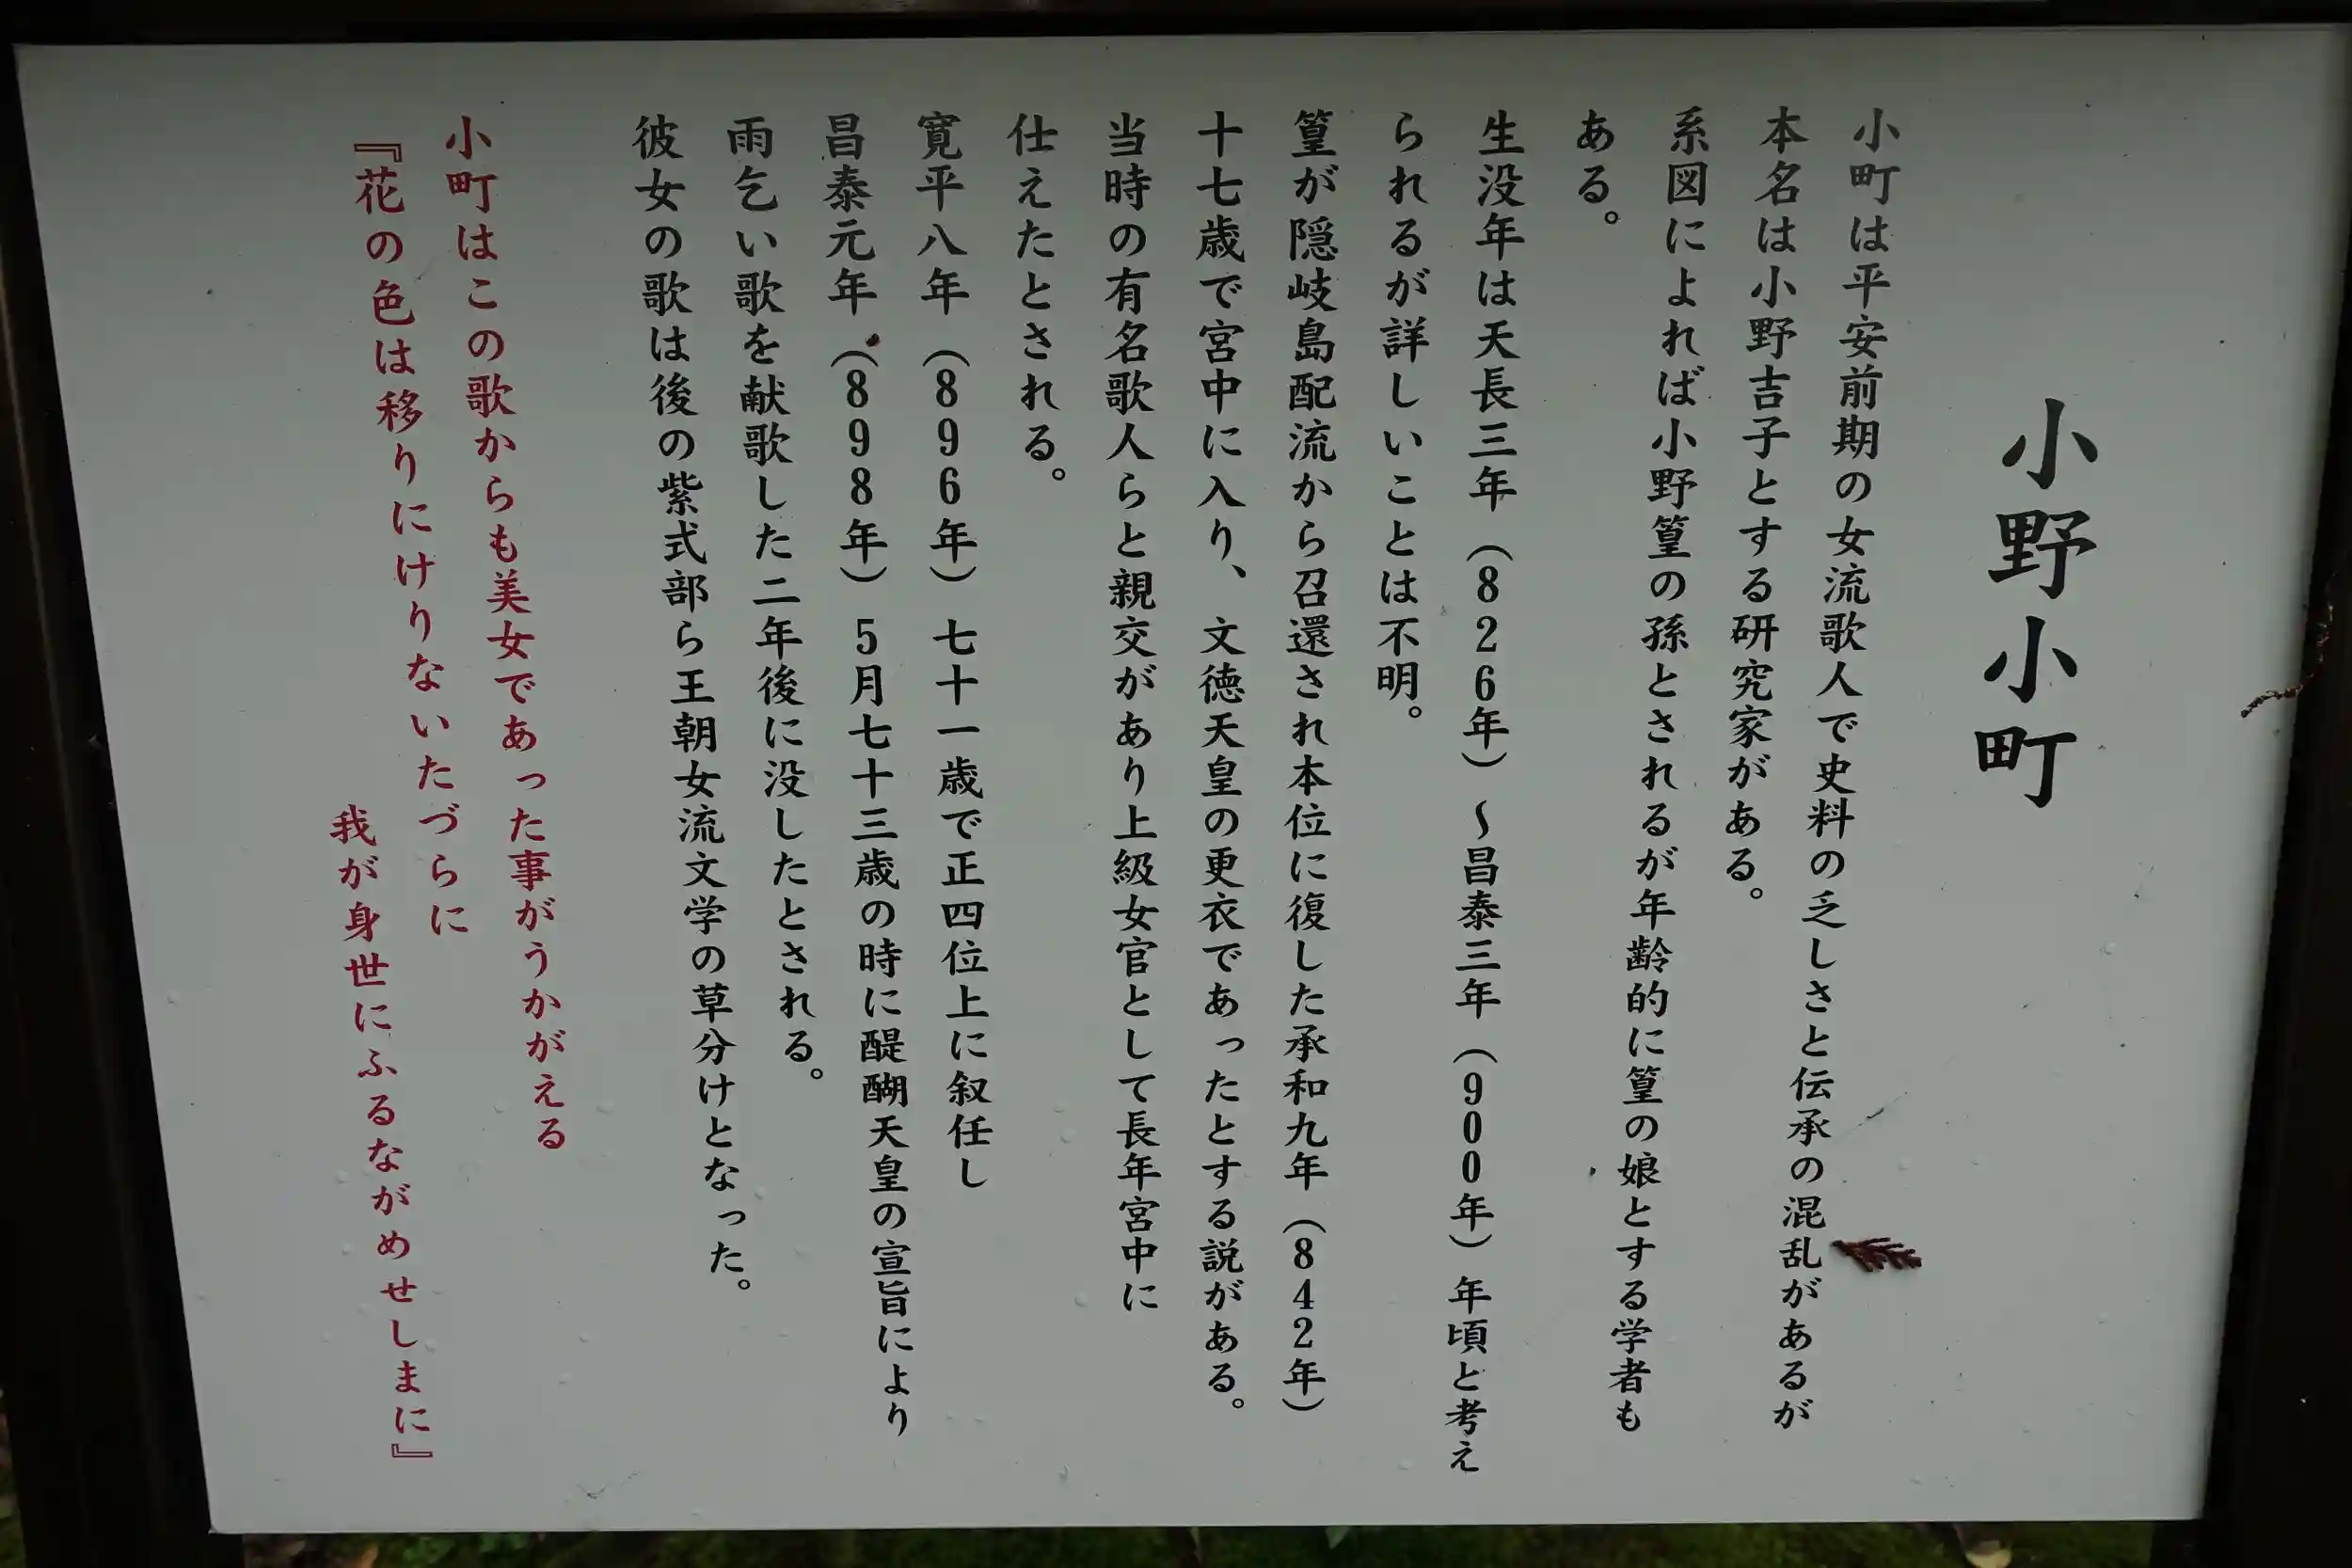 小野小町
小町は平安前期の女流歌人で史料の乏しさと伝承の混乱があるが
本名は小野吉子とする研究家がある。
系図によれば小野篁の孫とされるが年齢的に篁の娘とする学者も
ある。
生没年は天長三年（８２６年）〜昌泰三年（９００年）年頃と考え
られるが詳しいことは不明。
篁が隠岐島配流から召還され本位に復した承和九年（８４２年）
十七歳で宮中に入り、文徳天皇の更衣であったとする説がある。
当時の有名歌人らと親交があり上級女官として長年宮中に
仕えたとされる。
寛平八年（８９６年）七十一歳で正四位上に叙任し
昌泰元年（８９８年）５月七十三歳の時に醍醐天皇の宣旨により
雨乞い歌を献歌した二年後に没したとされる。
彼女の歌は後の紫式部ら王朝女流文学の草分けとなった。
小町はこの歌からも美女であった事がうかがえる
『花の色は移りにけりないたづらに
我が身世にふるながめせしまに』